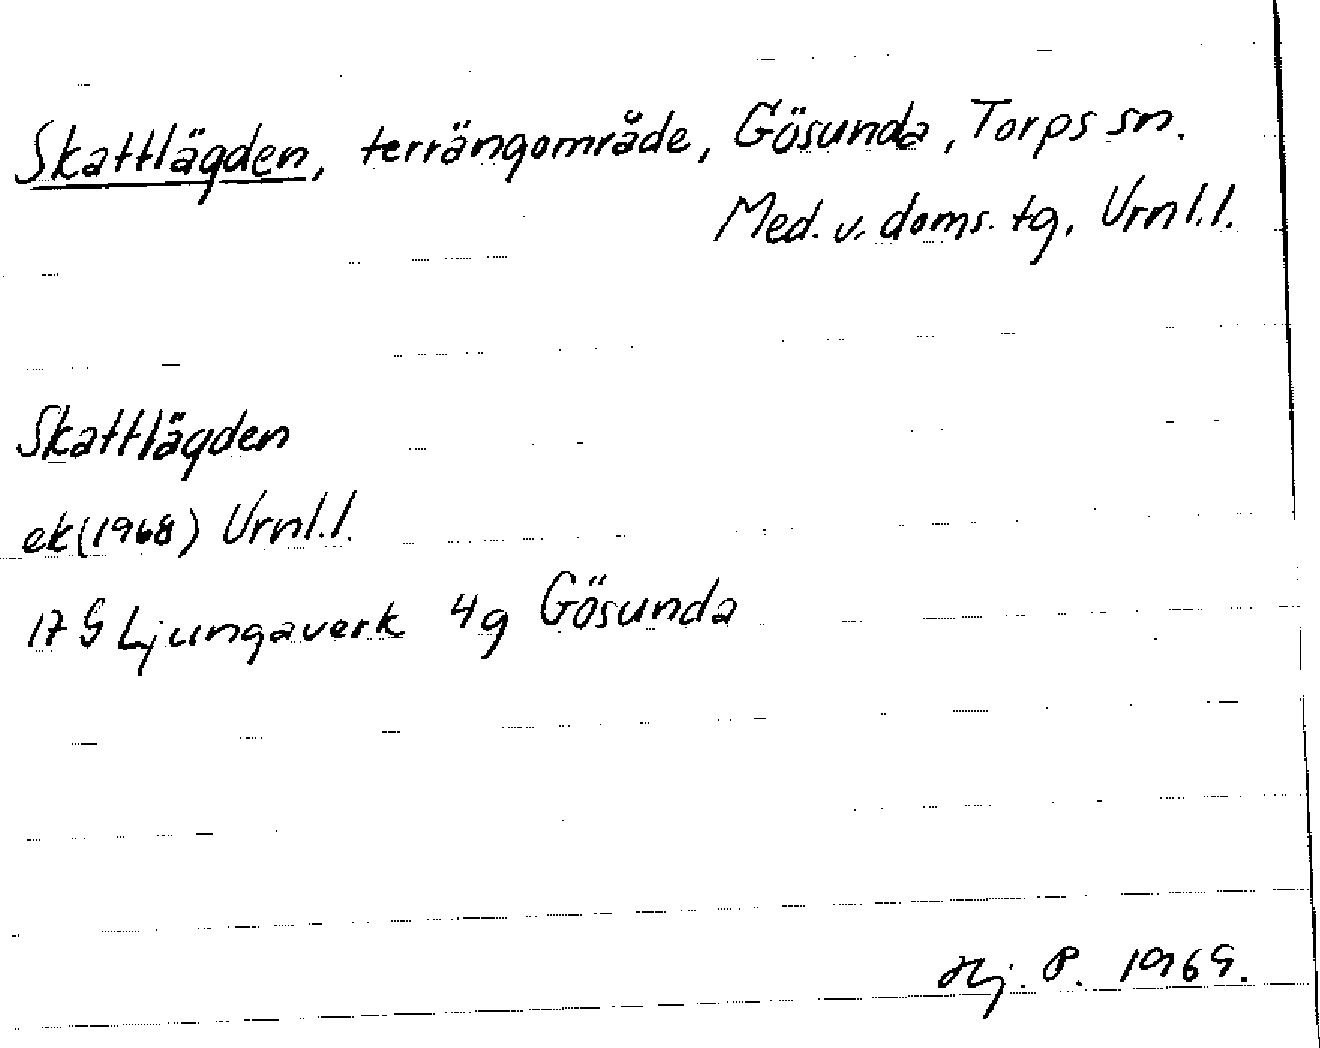 Skattlägden, terrängområde, Gösunda, Torps sn.
Med. v. doms. tg, Vrnl.l.
Skattlägden
ek (1968) Vrnl.l.
17 G Ljungaverk 4g Gösunda
Hj. P. 1969.